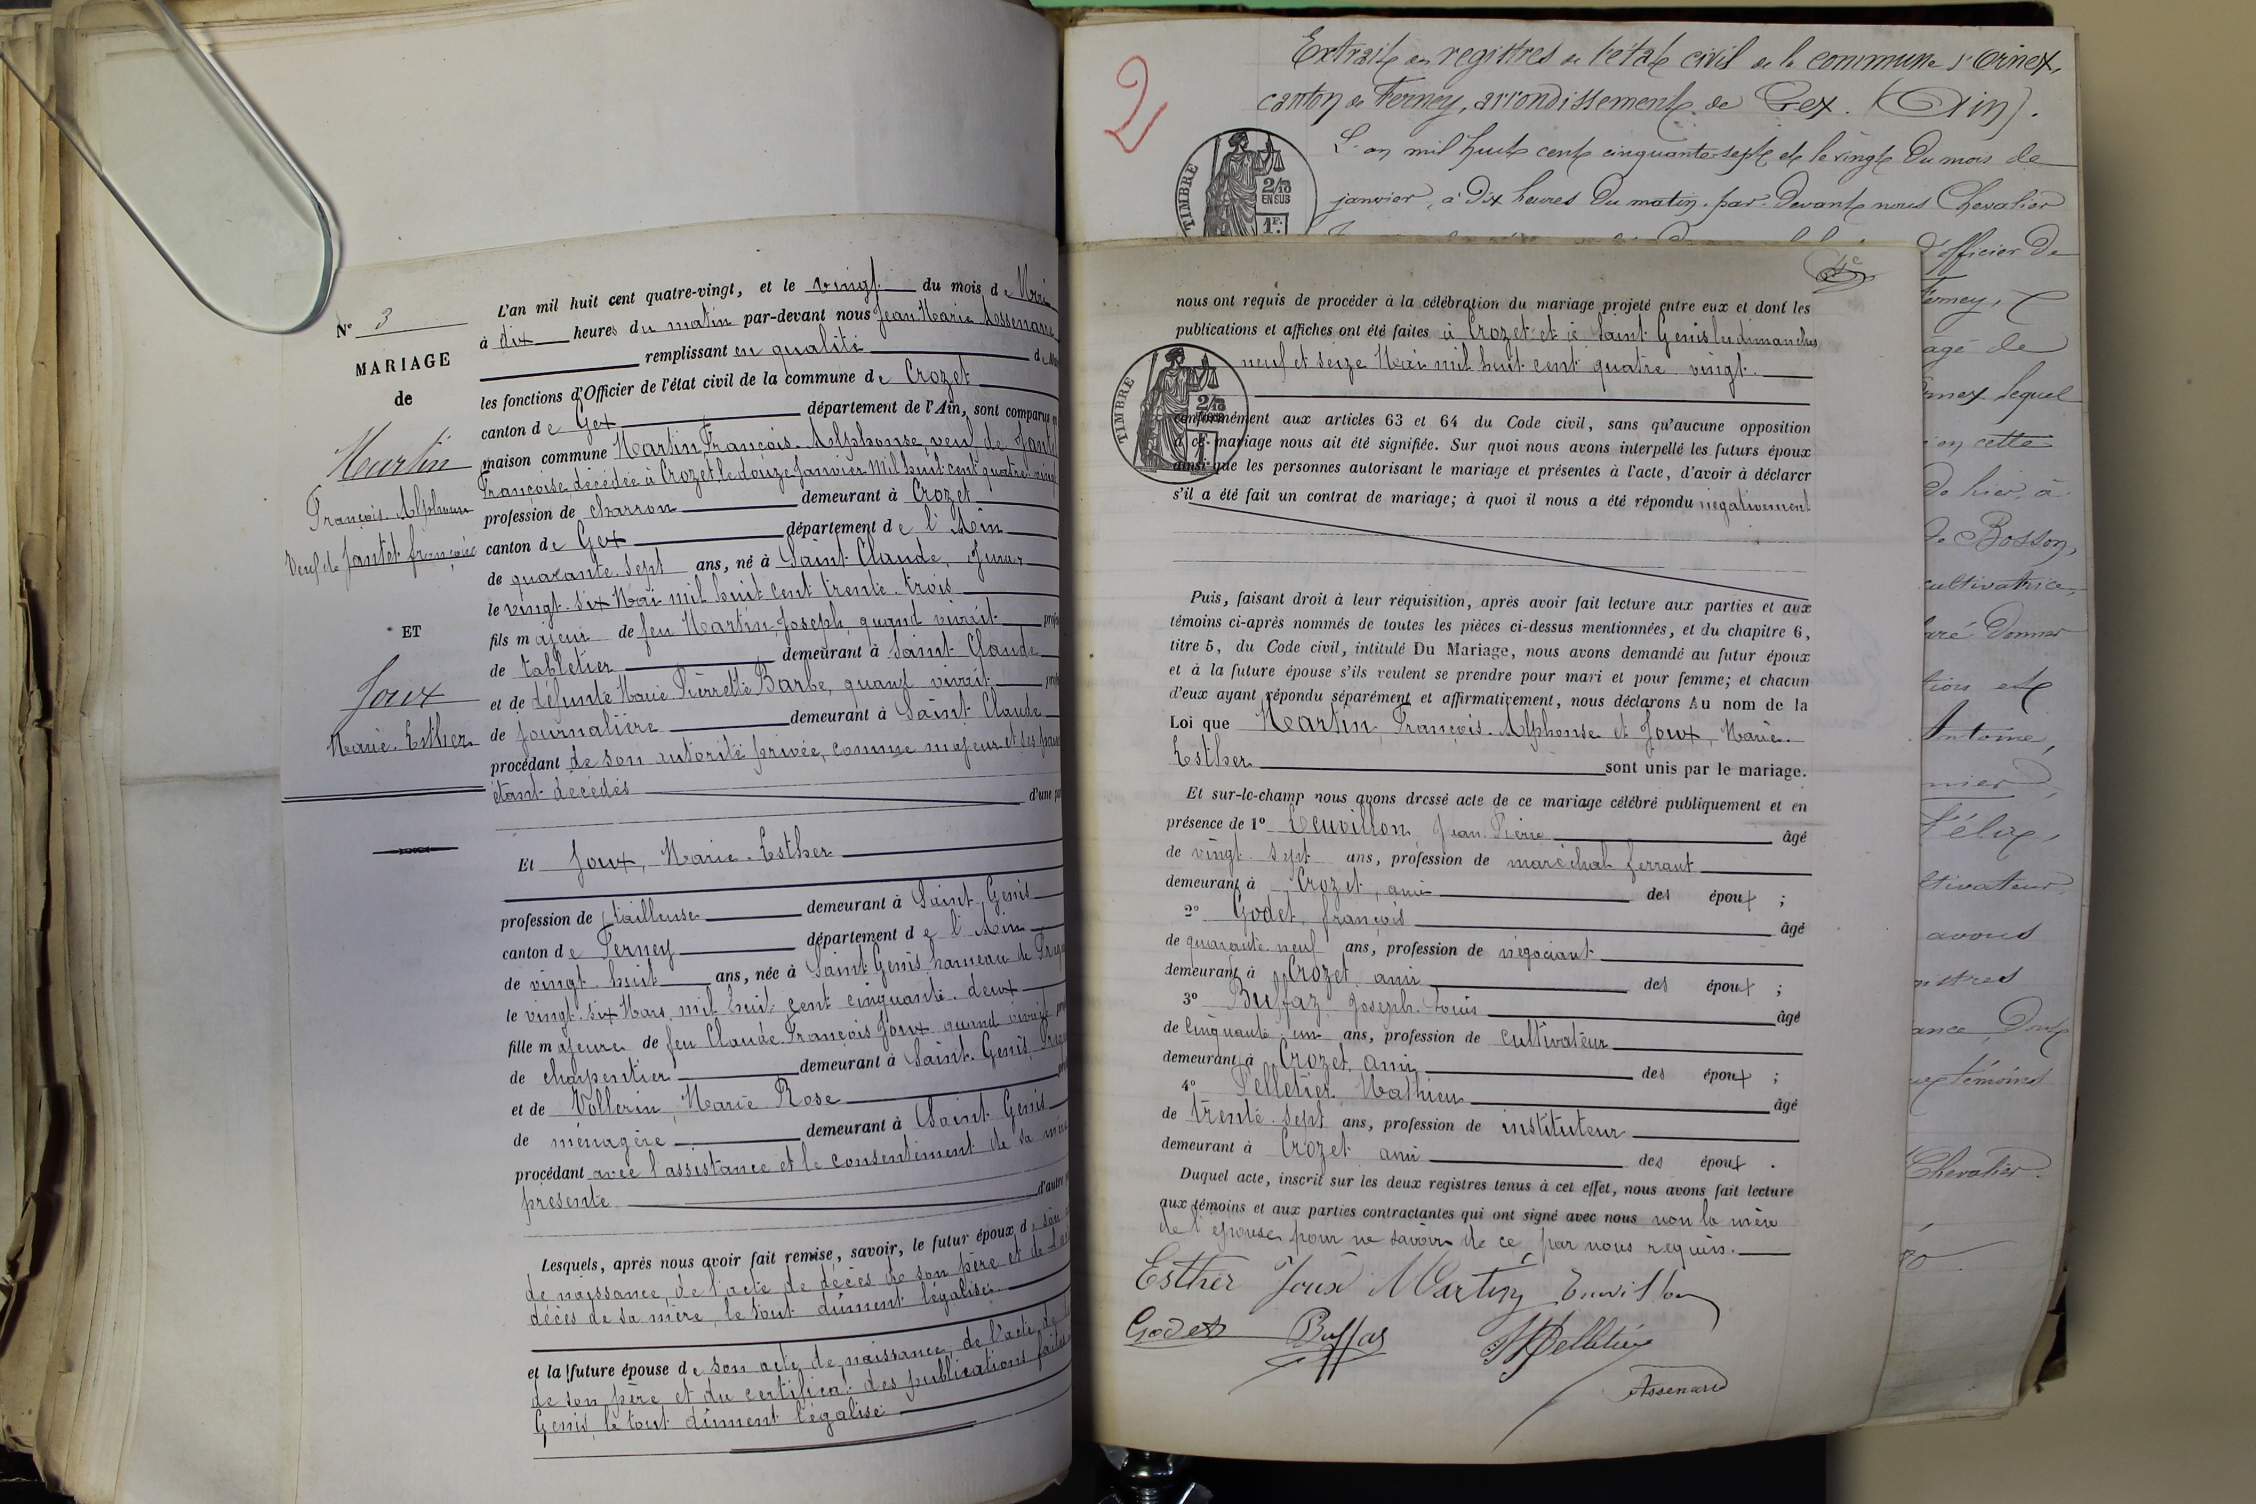 N° 3
MARIAGE
de
Martin
François Alphonse
Veuf de Jantet françoise
ET
Joux
Marie Esther
L'an mil huit cent quatre-vingt, et le vingt du mois de Mai
à dix heures du matin par-devant nous Jean Marie Assenard
remplissant en qualité de
les fonctions d'Officier de l'état civil de la commune de Crozet
canton de Gex département de l'Ain, sont comparus en
maison commune Martin, François-Alphonse, veuf de Jantet
Françoise, décédée à Crozet, le douze Janvier mil huit cent quatre-vingt
profession de charron demeurant à Crozet
canton de Gex département de l'Ain
de quarante-sept ans, né à Saint-Claude, Jura
le vingt-six Mai mil huit cent trente-trois
fils majeur de feu Martin, Joseph, quand vivait
de tabletier demeurant à Saint-Claude
et de défunte Marie Pierrette Barbe, quand vivait
de journalière demeurant à Saint-Claude
procédant de son autorité privée, comme majeur et ses
étant décédés d'une
Et Joux, Marie-Esther
profession de tailleuse demeurant à Saint Genis
canton de Ferney département de l'Ain
de vingt-huit ans, née à Saint Genis hameau de
le vingt-six Mars mil huit cent cinquante-deux
fille majeure de feu Claude-François Joux quand vivait
de charpentier demeurant à Saint-Genis
et de Vollerin, Marie Rose
de ménagère demeurant à Saint Genis
procédant avec l'assistance et le consentement de sa mère
présente d'autre
Lesquels, après nous avoir fait remise, savoir, le futur époux de son
de naissance, de l'acte de décès de son père et de
décès de sa mère, le tout dûment légalisé.
et la future épouse de son acte de naissance, de l'acte de
de son père et du certificat des publications faites
Genis, le tout dûment légalisé
2
Extrait des registres de l'état civil de la commune d'Ornex,
canton de Ferney, arrondissement de Gex. (Ain).
L'an mil huit cent cinquante-sept et le vingt du mois de
janvier, à dix heures du matin, par-devant nous Chevalier
TIMBRE
2/10
EN SUS
1F.
d'officier de
Ferney,
âgé de
lequel
en cette
de hier, à
de Bosson,
cultivatrice,
donner
Antoine,
avons
témoins
Chevalier
nous ont requis de procéder à la célébration du mariage projeté entre eux et dont les
publications et affiches ont été faites à Crozet et à Saint Genis les dimanches
neuf et seize Mai mil huit cent quatre-vingt.
TIMBRE
2/10
conformément aux articles 63 et 64 du Code civil, sans qu'aucune opposition
à ce mariage nous ait été signifiée. Sur quoi nous avons interpellé les futurs époux
ainsi que les personnes autorisant le mariage et présentes à l'acte, d'avoir à déclarer
s'il a été fait un contrat de mariage; à quoi il nous a été répondu négativement
Puis, faisant droit à leur réquisition, après avoir fait lecture aux parties et aux
témoins ci-après nommés de toutes les pièces ci-dessus mentionnées, et du chapitre 6,
titre 5, du Code civil, intitulé Du Mariage, nous avons demandé au futur époux
et à la future épouse s'ils veulent se prendre pour mari et pour femme; et chacun
d'eux ayant répondu séparément et affirmativement, nous déclarons Au nom de la
Loi que Martin, François-Alphonse et Joux, Marie-
Esther sont unis par le mariage.
Et sur-le-champ nous avons dressé acte de ce mariage célébré publiquement et en
présence de 1° Jean Pierre âgé
de vingt-sept ans, profession de maréchal ferrant
demeurant à Crozet, ami des époux ;
2° Godet, françois âgé
de quarante-neuf ans, profession de négociant
demeurant à Crozet, ami des époux ;
3° Buffaz Joseph-Louis âgé
de cinquante-un ans, profession de cultivateur
demeurant à Crozet ami des époux ;
4° Pelletier Mathieu âgé
de trente-sept ans, profession de instituteur
demeurant à Crozet ami des époux .
Duquel acte, inscrit sur les deux registres tenus à cet effet, nous avons fait lecture
aux témoins et aux parties contractantes qui ont signé avec nous non la mère
de l'épouse pour ne savoir de ce par nous requis.
Esther Joux Martin
Godet Buffas M Pelletier
Assenard